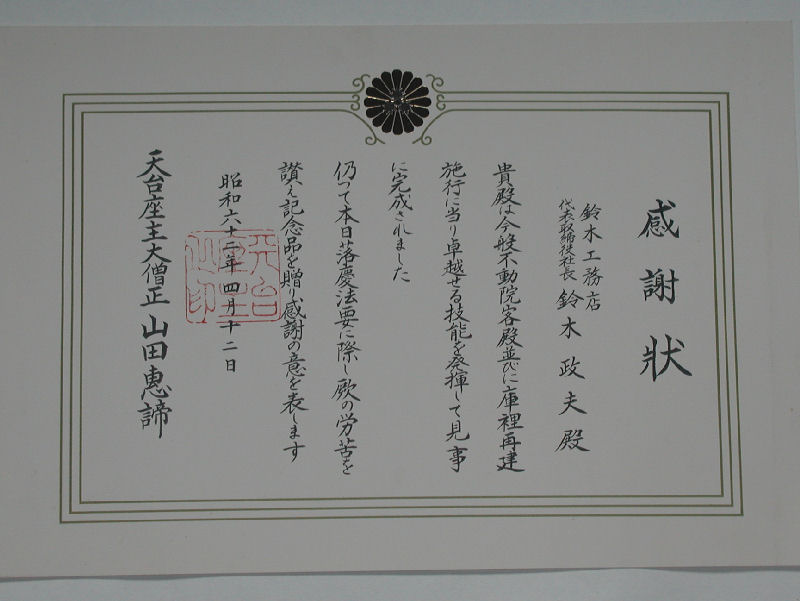 感謝状
鈴木工務店
代表取締役社長 鈴木政夫殿
貴殿は今般不動院客殿並びに庫裡再建
施行に当り卓越せる技能を発揮して見事
に完成されました
仍つて本日落慶法要に際し厥の労苦を
讃え記念品を贈り感謝の意を表します
昭和六十二年四月十二日
天台座主大僧正 山田恵諦
天台
座主
之印